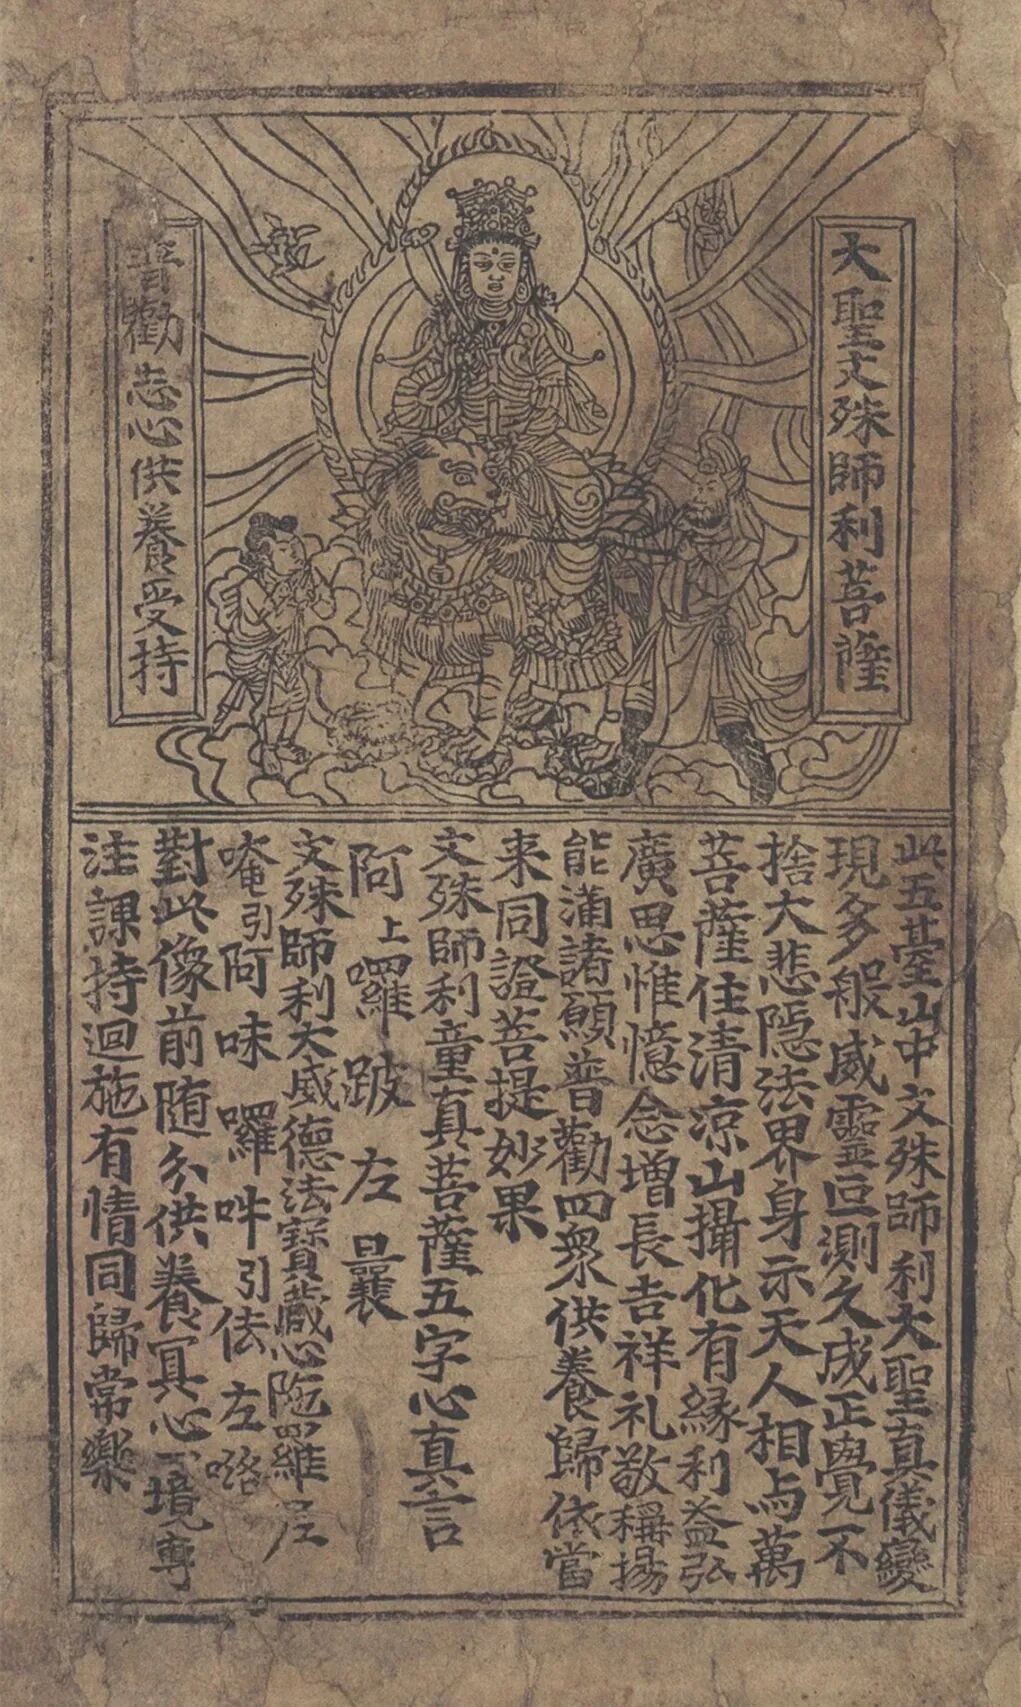 大聖文殊師利菩薩
普勸志心供養受持
此五臺山中文殊師利大聖真儀變
現多般威靈叵測久成正覺不
捨大悲隱法界身示天人相与萬
菩薩住清涼山攝化有緣利益弘
廣思惟憶念增長吉祥礼敬稱揚
能滿諸願普勸四眾供養歸依當
来同證菩提妙果
文殊師利童真菩薩五字心真言
阿上囉 跛 左 曩
文殊師利大威德法寶藏心陁羅尼
唵引阿味 囉吽引佉左𠷑
對此像前随分供養冥心一境專
注課持迴施有情同歸常樂